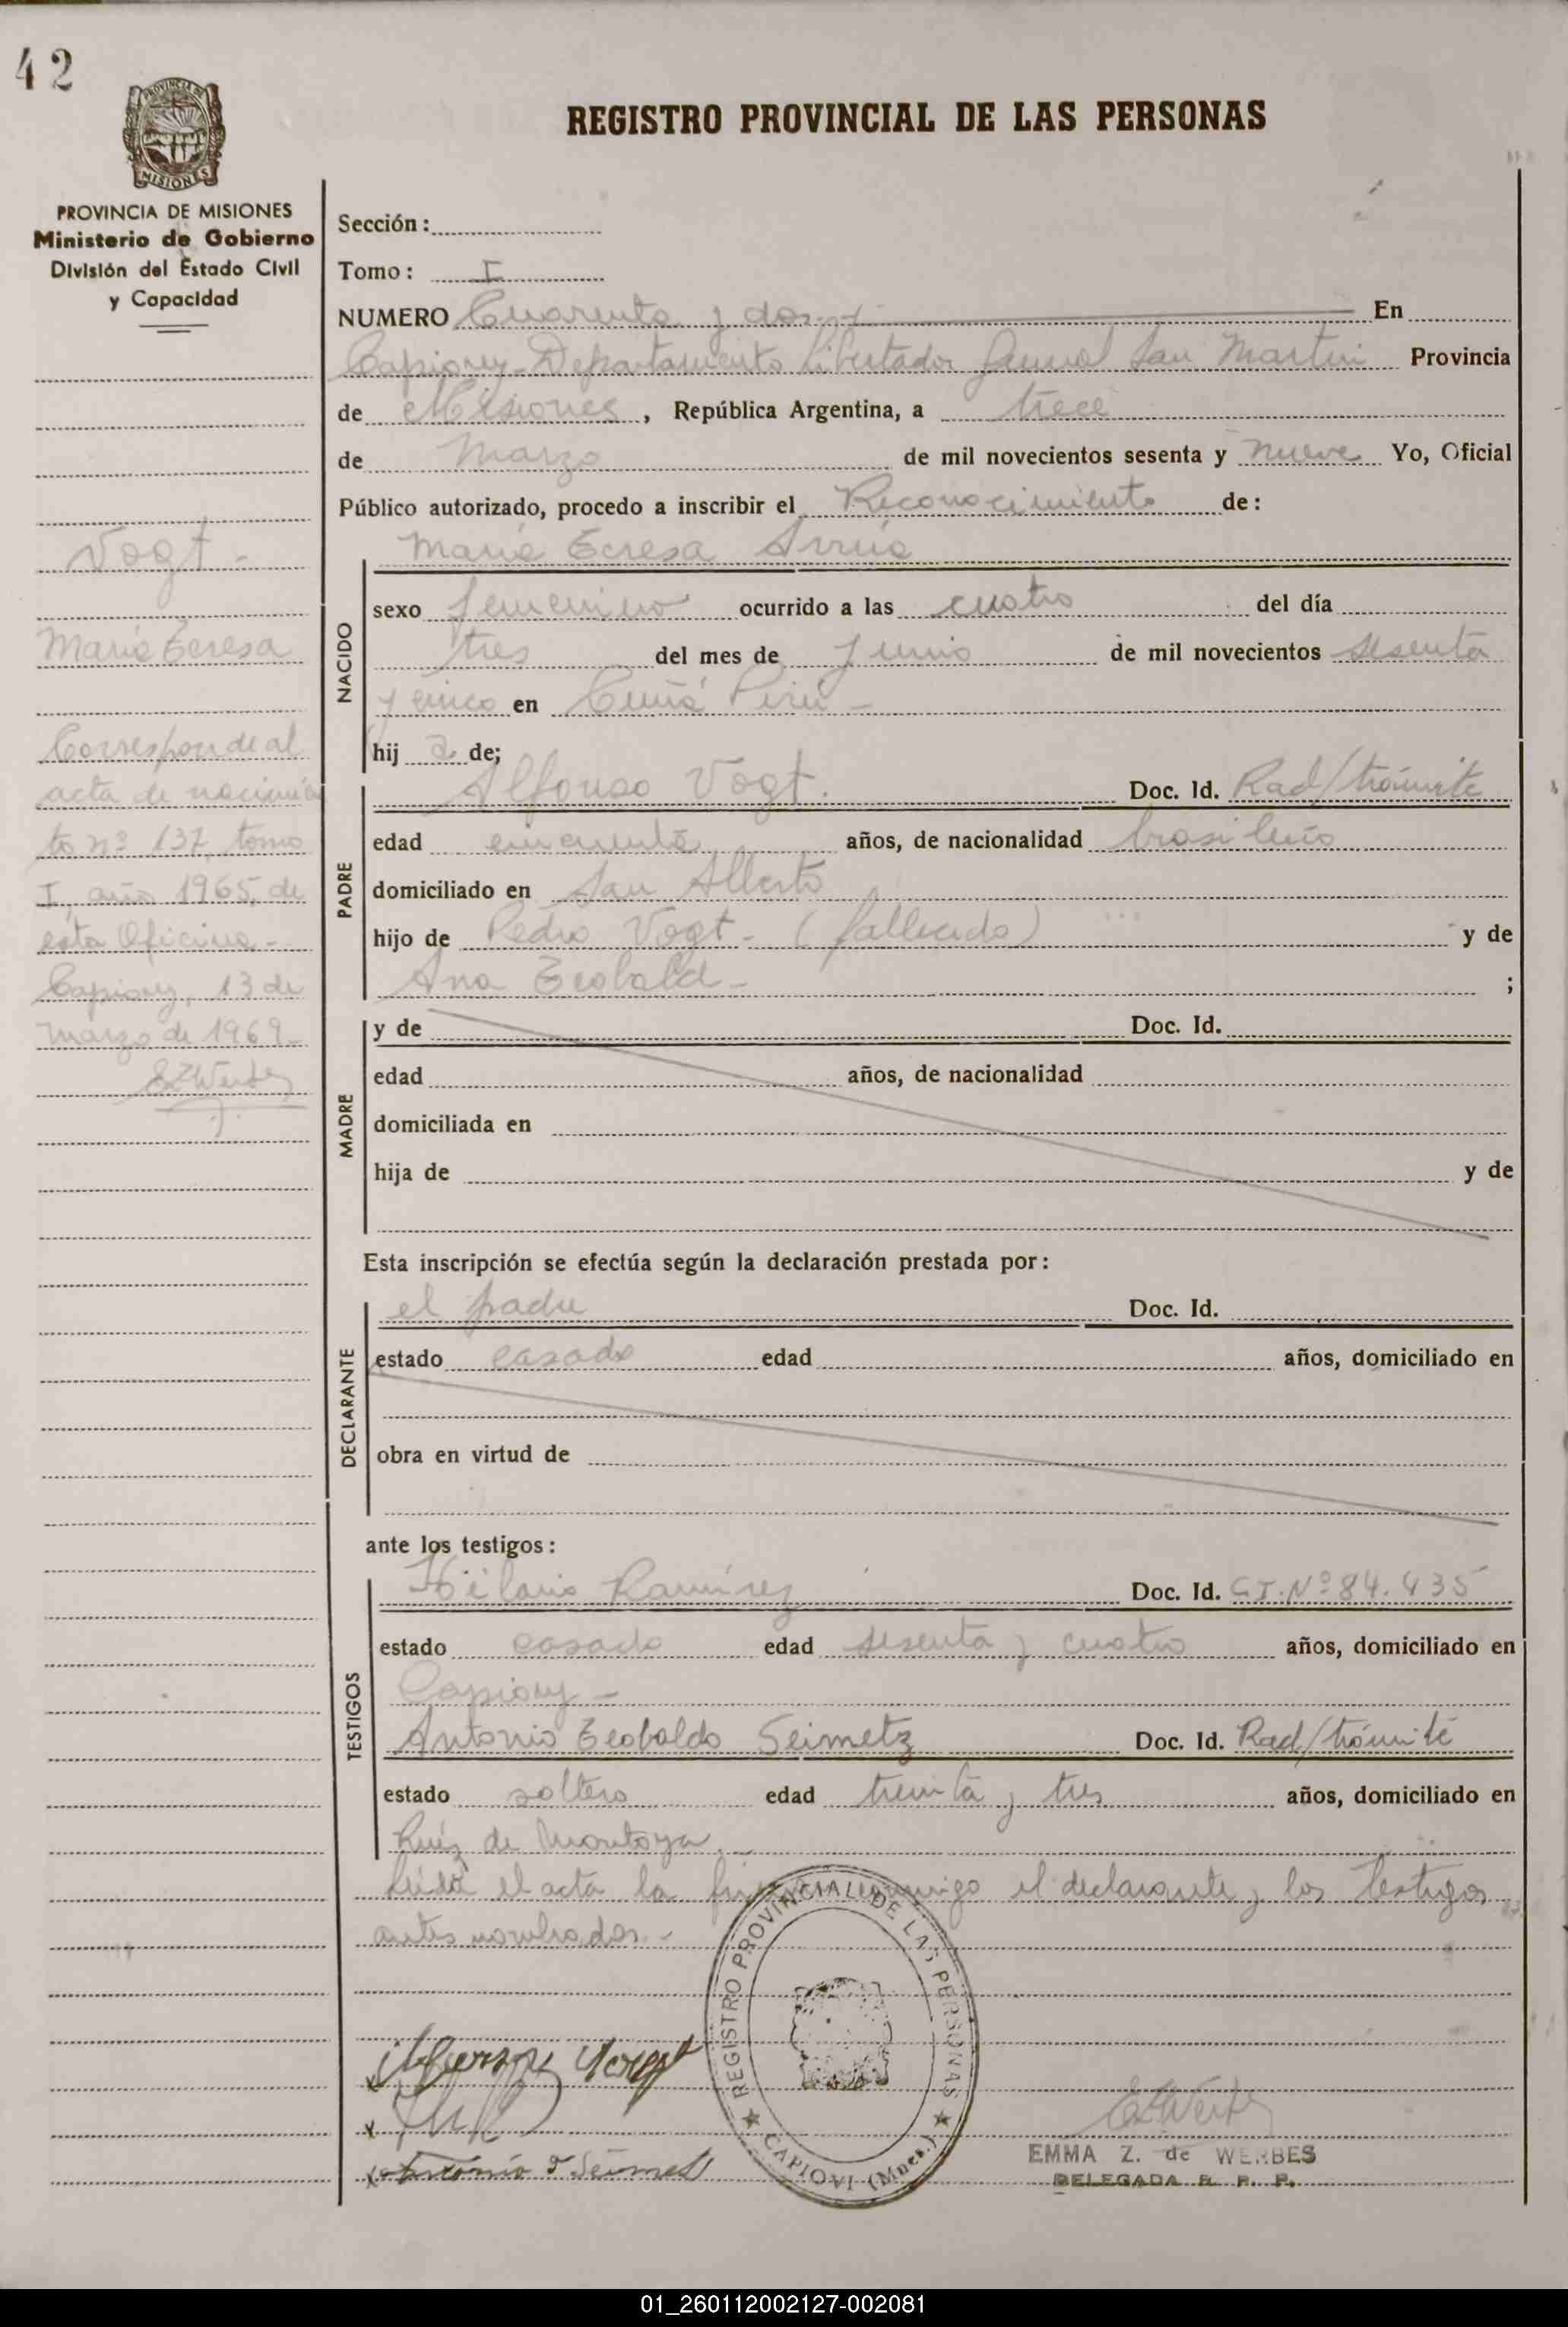 42
PROVINCIA DE
MISIONES
REGISTRO PROVINCIAL DE LAS PERSONAS
PROVINCIA DE MISIONES
Ministerio de Gobierno
División del Estado Civil
y Capacidad
Vogt -
María Teresa
Corresponde al
acta de nacimien
to nº 137, tomo
I, año 1965, de
esta Oficina -
Capiovy, 13 de
marzo de 1969 -
Sección:
Tomo: I
NUMERO Cuarenta y dos.- En
Capiovy - Departamento Libertador General San Martín Provincia
de Misiones, República Argentina, a trece
de Marzo de mil novecientos sesenta y nueve Yo, Oficial
Público autorizado, procedo a inscribir el Reconocimiento de:
María Teresa Arrúa
NACIDO
sexo femenino ocurrido a las cuatro del día
tres del mes de Junio de mil novecientos sesenta
y cinco en Cuñá Pirú -
hij a de;
PADRE
Alfonso Vogt. Doc. Id. Rad/trámite
edad cincuenta años, de nacionalidad brasileño
domiciliado en San Alberto
hijo de Pedro Vogt - (fallecido) y de
Ana Teobald - ;
MADRE
y de Doc. Id.
edad años, de nacionalidad
domiciliada en
hija de y de
Esta inscripción se efectúa según la declaración prestada por:
DECLARANTE
el padre Doc. Id.
estado casado edad años, domiciliado en
obra en virtud de
ante los testigos:
TESTIGOS
Hilario Ramírez Doc. Id. C.I. Nº 84.435
estado casado edad sesenta y cuatro años, domiciliado en
Capiovy -
Antonio Teobaldo Seimetz Doc. Id. Rad/trámite
estado soltero edad treinta y tres años, domiciliado en
Ruíz de Montoya. -
Leída el acta la conmigo el declarante y los testigos
antes nombrados. -
REGISTRO PROVINCIAL DE LAS PERSONAS
CAPIOVI (Mnes.)
Antonio T Seimetz
EMMA Z. de WERBES
DELEGADA R. P. P.
01_260112002127-002081